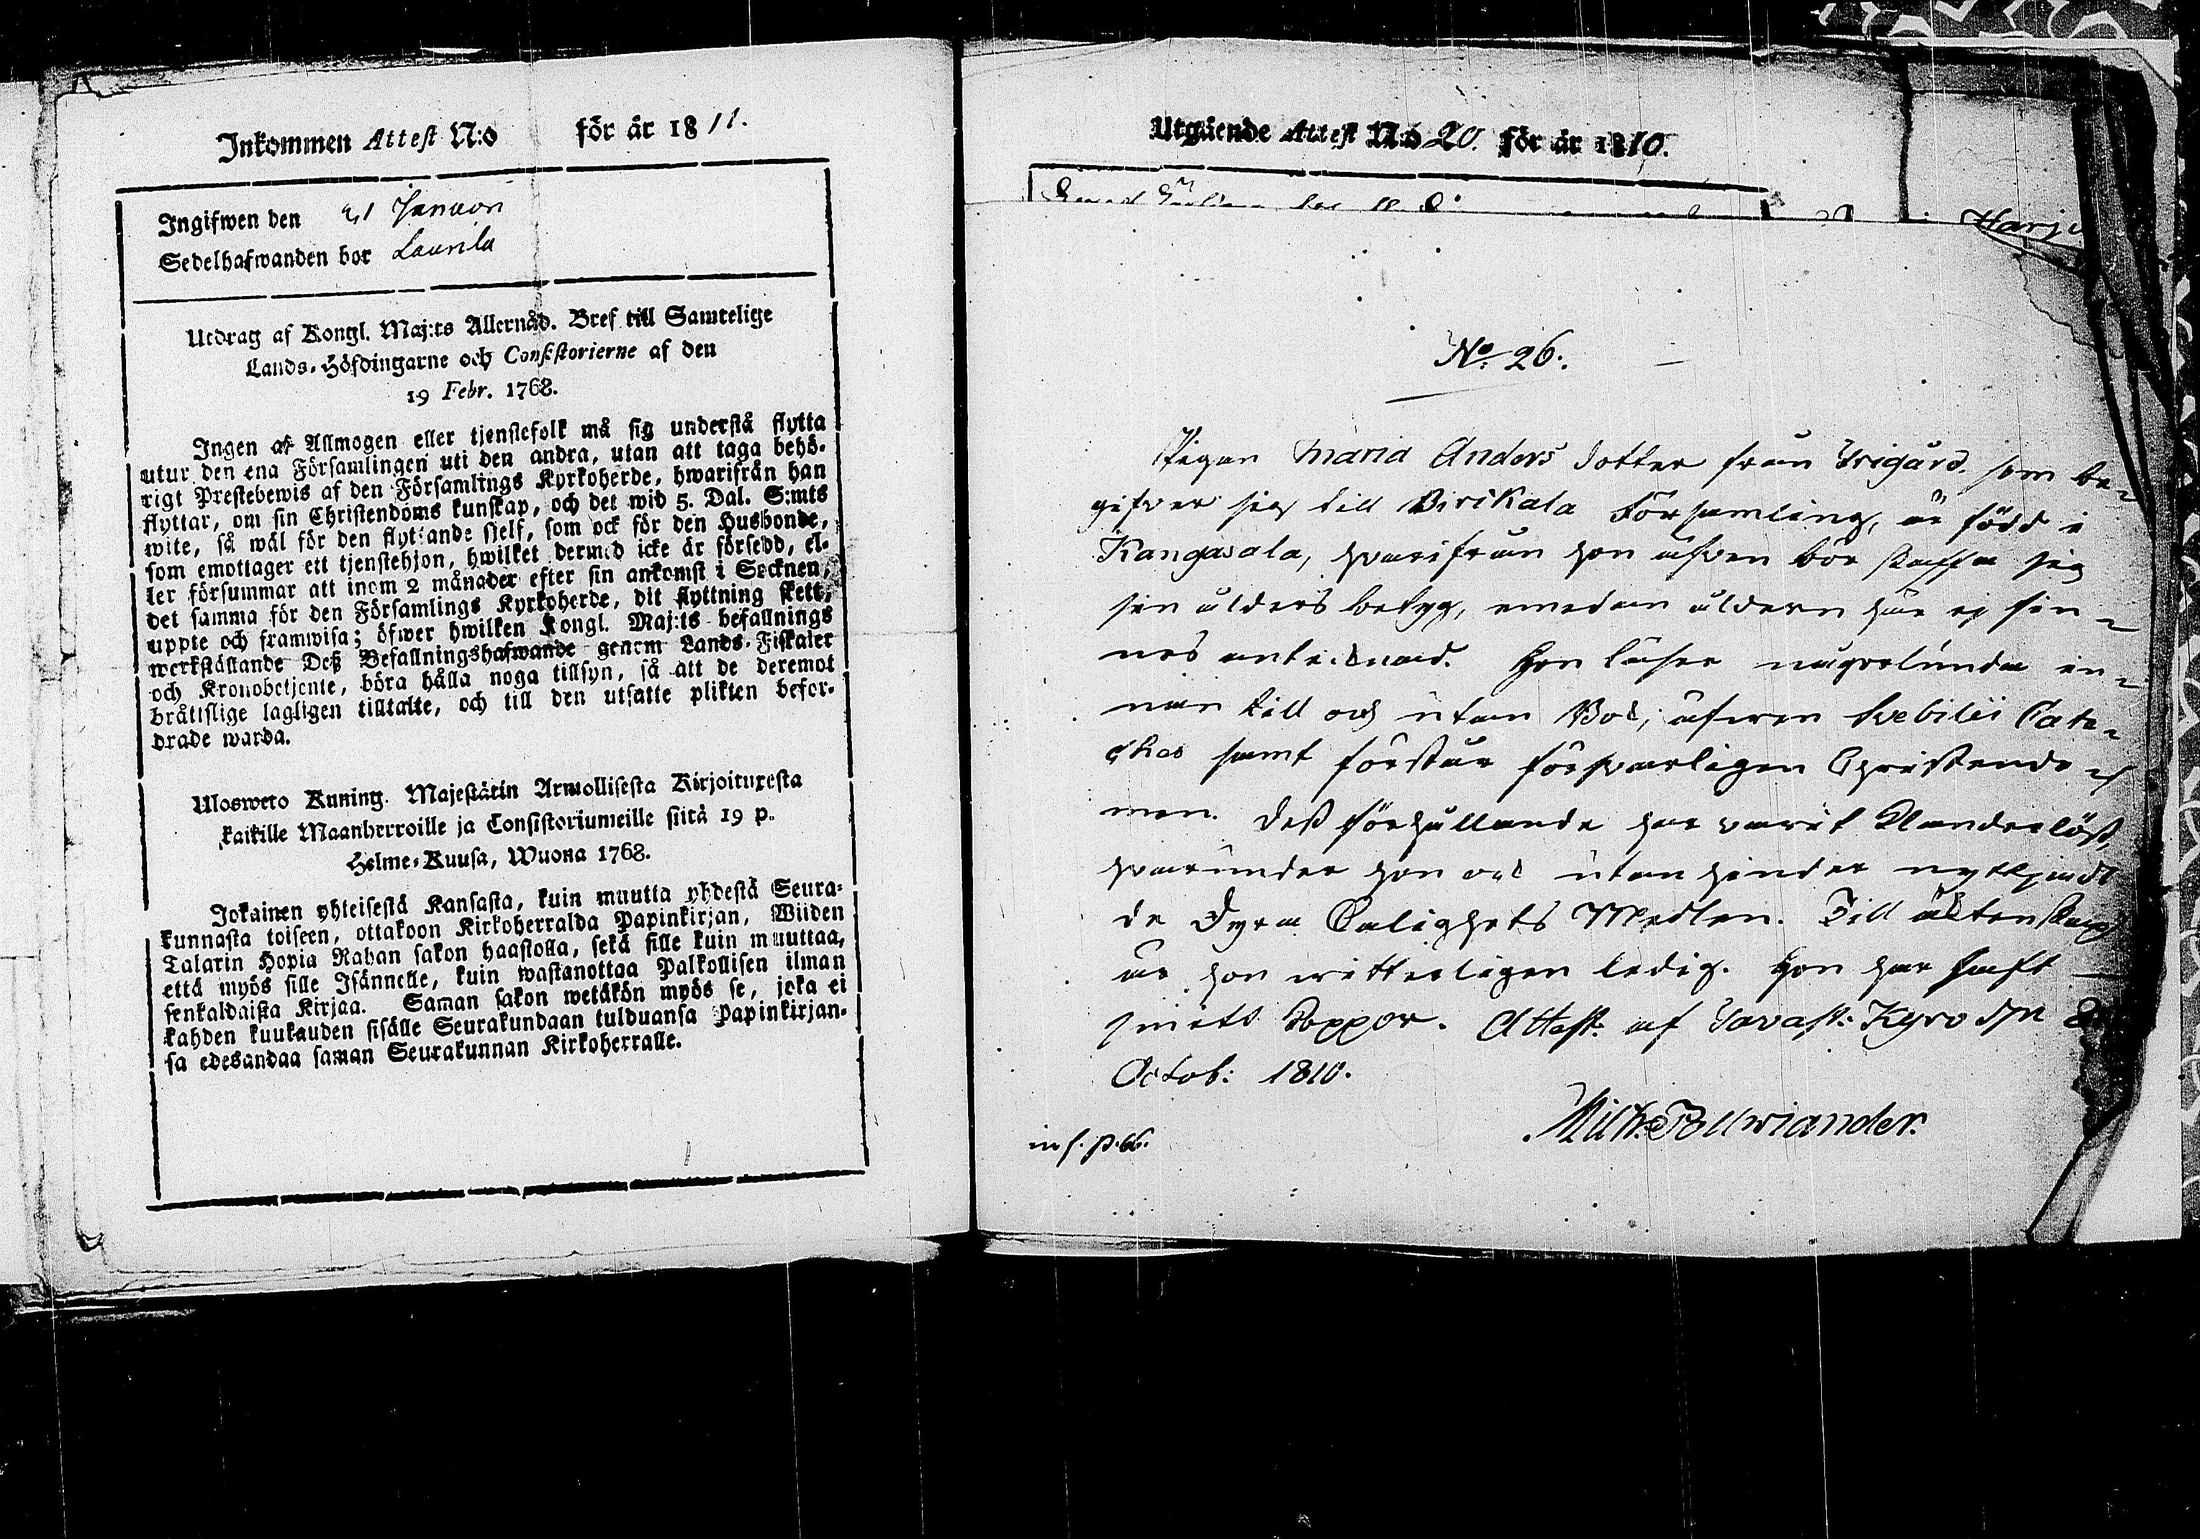 Inkommen Attest N:o för år 1811.
Ingifwen den 21 Januari
Sedelhafwanden bor Laurila
Utdrag af Kongl. Maj:ts Allernåd. Bref till Samtelige
Lands-Höfdingarne och Consistorierne af den
19 Febr. 1768.
Ingen af Allmogen eller tjenstefolk må sig understå flytta
utur den ena Församlingen uti den andra, utan att taga behö-
rigt Prestebewis af den Församlings Kyrkoherde, hwarifrån han
flyttar, om sin Christendoms kunskap, och det wid 5. Dal. S:mts
wite, så wäl för den flyttande sjelf, som ock för den Husbonde,
som emottager ett tjenstehjon, hwilket dermed icke är försedd, el-
ler försummar att inom 2 månader efter sin ankomst i Socknen,
det samma för den Församlings Kyrkoherde, dit flyttning skett,
uppte och framwisa; öfwer hwilken Kongl. Maj:ts befallnings
werkställande Deß Befallningshafwande genom Lands-Fiskaler
och Kronobetjente, böra hålla noga tillsyn, så att de deremot
bråttslige lagligen tilltalte, och till den utsatte plikten befor-
drade warda.
Ulosweto Kuning. Majestätin Armollisesta Kirjoituxesta
kaikille Maanherroille ja Consistoriumeille siitä 19 p.
Helme-Kuusa, Wuona 1768.
Jokainen yhteisestä Kansasta, kuin muutta yhdestä Seura-
kunnasta toiseen, ottakoon Kirkoherralda Papinkirjan, Wiiden
Talarin Hopia Rahan sakon haastolla, sekä sille kuin muuttaa,
että myös sille Isännelle, kuin wastanottaa Palkollisen ilman
senkaldaista Kirjaa. Saman sakon wetäkön myös se, joka ei
kahden kuukauden sisälle Seurakundaan tulduansa Papinkirjan-
sa edesandaa saman Seurakunnan Kirkoherralle.
Utgående Attest N:o 20. för år 1810.
No. 26.
Pigan Maria Anders dotter från Yrigård som be-
gifver sig till Birikala Församling, är född i
Kangasala, hvarifrån hon äfven bör skaffa sig
sin ålders betyg, emedan åldern här ej fin-
nes antecknad. Hon läser någorlunda in-
nan till och utan Bok, äfwen Svebilii Cate-
ches samt förstår försvarligen Christendo-
men. Deß förhållande har varit klanderlöst,
hvarunder hon ock utan hinder nyttjadt
de dyra Salighets Medlen. Till äktenskap
är hon witterligen ledig. Hon har haft
Koppor. Attest: af Tavast: Kyro d.
Octob: 1810.